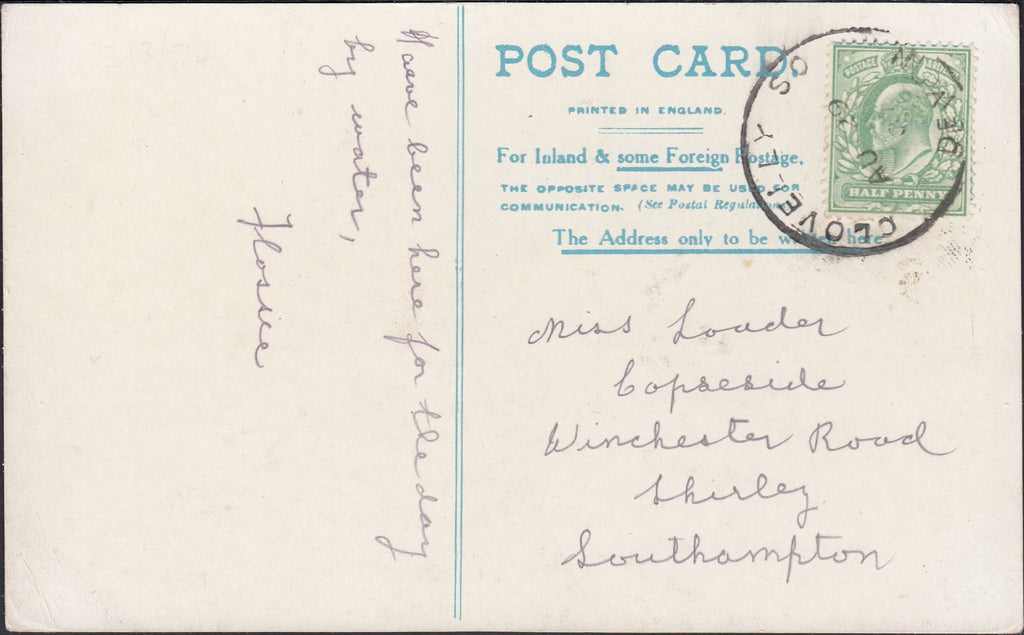 Haave been here for the day
by water,
Flossie
POST CARD.
PRINTED IN ENGLAND.
For Inland & some Foreign Postage,
THE OPPOSITE SPACE MAY BE USED FOR
COMMUNICATION. (See Postal Regulations)
The Address only to be written here
Miss Louder
Copseside
Winchester Road
Shirley
Southampton
POSTAGE
HALF PENNY
CLOVELLY S.O
DEVON
AU
09